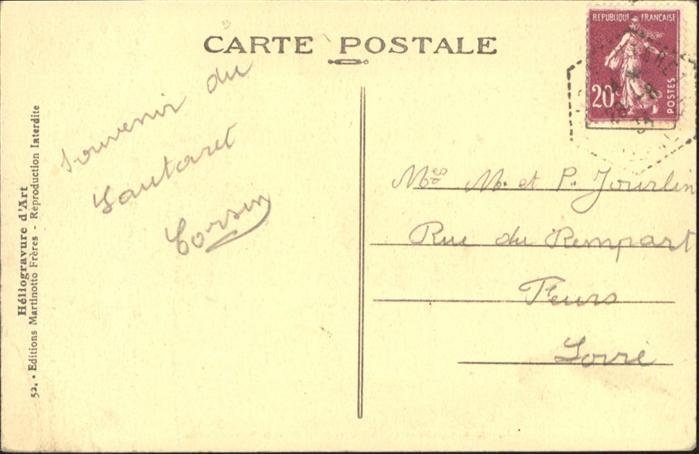 CARTE POSTALE
REPUBLIQUE FRANÇAISE
20c
POSTES
Souvenir du
Lautaret
Corsin
Mes M. et P. Jourlin
Rue du Rempart
Feurs
Loire
Héliogravure d'Art
52. • Editions Martinotto Frères - Reproduction Interdite